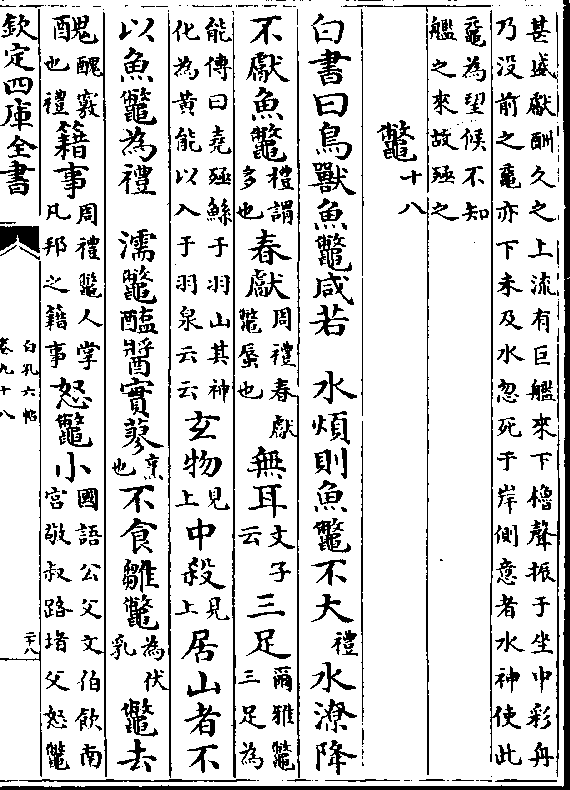 甚盛獻酬久之上流有巨艦來下櫓聲振于坐中彩舟
乃没前之黿亦下未及水忽死于岸側意者水神使此
黿為望候不知
艦之來故殛之
鼈十八
白書曰鳥獸魚鼈咸若　水煩則魚鼈不大禮水潦降
不獻魚鼈禮謂多也春獻周禮春獻鼈蜃也無耳文子云三足爾雅鼈三足為
能傳曰堯殛鯀于羽山其神化為黄能以入于羽泉云云玄物見上中殺見上居山者不
以魚鼈為禮　濡鼈醢醬實蓼烹也不食雛鼈為伏乳鼈去
醜醜竅也禮籍事周禮鼈人掌凡邦之籍事怒鼈小國語公父文伯飲南宫敬叔路堵父怒鼈
欽定四庫全書
白孔六帖
卷九十八
二六